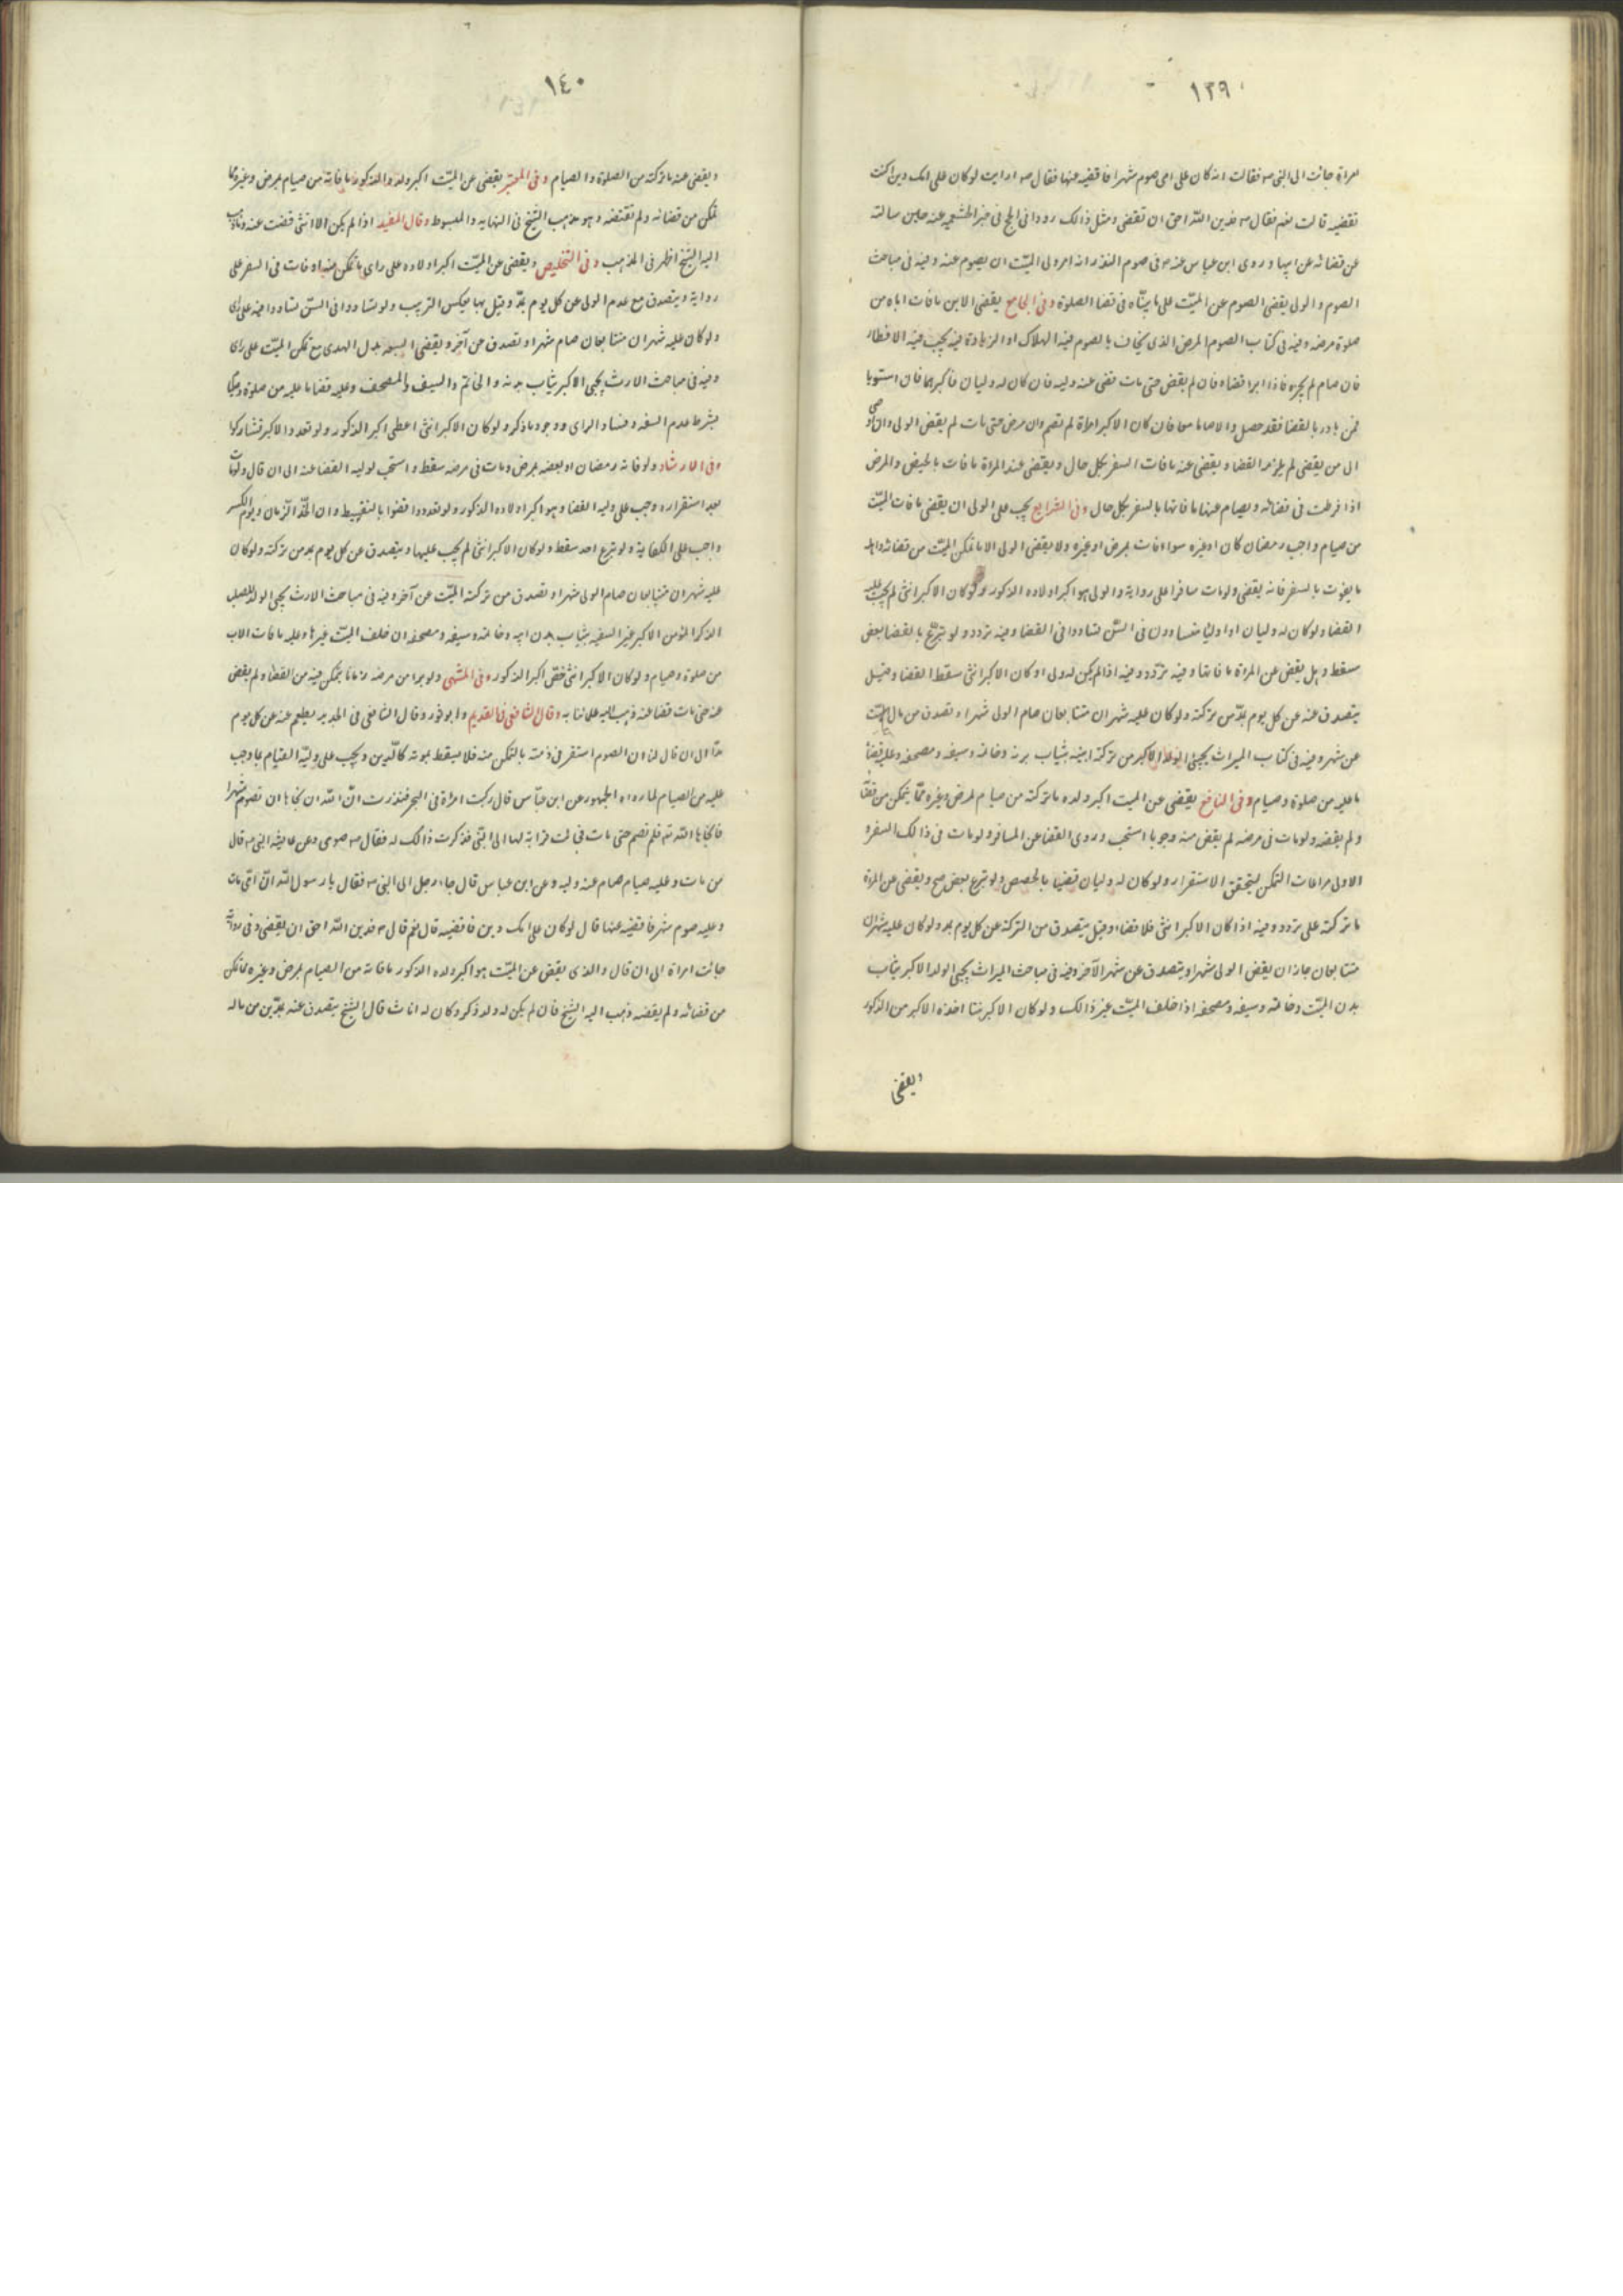 ١٣٩
امراة جائت الى النبى ص فقالت انه كان على امى صوم شهر افاقضيه عنها فقال ص ارايت لو كان على امك دين اكنت
تقضيه قالت نعم فقال ص فدين الله احق ان تقضى ومثل ذالك روانى الحج فى خبر الخثعميه عنه حين سالته
عن قضائه عن ابيها وروى ابن عباس عنه ص فى صوم النذر انه امر ولى الميّت ان يصوم عنه وفيه فى مباحث
الصوم والولى يقضى الصوم عن الميّت على ما بيّناه فى قضا الصلوة وفى الجامع يقضى الابن ما فات اباه من
صلوة مرضه وفيه فى كتاب الصوم المرض الذى يخاف بالصوم فيه الهلاك او الزيادة فيه يجب فيه الافطار
فان صام لم يجزه فاذا ابرا قضاه فان لم يقض حتى مات قضى عنه وليه فان كان له وليان فاكبرهما فان استويا
فمن بادر بالقضا فقد حصل والا صاما معا فان كان الاكبر امراة لم تصم وان مرض حتى مات لم يقض الولى وان
الى من يقضى لم يلزمه القضا ويقضى عنه ما فات السفر بكل حال ويقضى عند المراة ما فات بالحيض والمرض
اذا فرطت فى قضائه ويصام عنها ما فاتها بالسفر بكل حال وفى الشرايع يجب على الولى ان يقضى ما فات الميّت
من صيام واجب رمضان كان او غيره سواء فات لمرض او غيره ولا يقضى الولى الا ما تمكن الميّت من قضائه واهمله
ما يفوت بالسفر فانه يقضى ولو مات مسافرا على رواية والولى هو اكبر اولاده الذكور ولو كان الاكبر انثى لم يجب عليه
القضا ولو كان له وليان او اوليا متساوون فى السّن تساووا فى القضا وفيه تردد ولو تبرّع بالقضا بعض
سقط وهل يقضى عن المراة ما فاتها وفيه تردّد وفيه اذا لم يكن له ولى او كان الاكبر انثى سقط القضا وقيل
يتصدق عنه عن كل يوم بمدّ من تركته ولو كان عليه شهران متتابعان صام الولى شهرا وتصدق من مال الميّت
عن شهر وفيه فى كتاب الميراث يحبى الولد الاكبر من تركة ابيه بثياب بدنه وخاتمه وسيفه ومصحفه وعليه قضا
ما عليه من صلوة وصيام وفى النافع يقضى عن الميت اكبر ولده ما تركه من صيام لمرض وغيره ممّا يتمكن من قضائه
ولم يقضه ولو مات فى مرضه لم يقض منه وجوبا استحب وروى القضا عن المسافر ولو مات فى ذالك السفر و
الاولى مراعات التمكن ليتحقق الاستقرار ولو كان له وليان قضيا بالحصص ولو تبرع بعض صح ويقضى عن المراة
ما تركته على تردد وفيه اذا كان الاكبر انثى فلا قضاء وقيل يتصدق من التركة عن كل يوم بمد ولو كان عليه شهران
متتابعان جاز ان يقضى الولى شهرا ويتصدق عن شهر الآخر وفيه فى مباحث الميراث يحبى الولد الاكبر بثياب
بدن الميّت وخاتمه وسيفه ومصحفه اذا خلف الميّت غير ذالك ولو كان الاكبر بنتا اخذه الاكبر من الذكور
ويقضى
١٤٠
ويقضى عنه ما تركه من الصلوة والصيام وفى المعتبر يقضى عن الميّت اكبر ولده الذكور ما فاته من صيام لمرض وغيره مما
تمكن من قضائه ولم يقضه وهو مذهب الشيخ فى النهايه والمبسوط وقال المفيد اذا لم يكن الا انثى قضت عنه وما ذهب
اليه الشيخ اظهر فى المذهب وفى التخليص ويقضى عن الميّت اكبر اولاده على راى ما تمكن منه او فات فى السفر على
رواية ويتصدق مع عدم الولى عن كل يوم بمدّ وقيل بها بعكس الترتيب ولو تساووا فى السّن تساووا فيه على راى
ولو كان عليه شهران متتابعان صام شهرا وتصدق عن آخر ويقضى السبعه بدل الهدى مع تمكن الميّت على راى
وفيه فى مباحث الارث يحبى الاكبر بثياب بدنه والخاتم والسيف والمصحف وعليه قضا ما عليه من صلوة وصيام
بشرط عدم السفه وفساد الراى ووجود ما ذكر ولو كان الاكبر انثى اعطى اكبر الذكور ولو تعدد الاكبر تشاركوا
وفى الارشاد ولو فاته رمضان او بعضه لمرض ومات فى مرضه سقط واستحب لوليه القضا عنه الى ان قال ولو مات
بعد استقراره وجب على وليه القضا وهو اكبر اولاده الذكور ولو تعددوا قضوا بالتقسيط وان اتحّد الزمان ويوم الكسر
واجب على الكفاية ولو تبرع احد سقط ولو كان الاكبر انثى لم يجب عليها ويتصدق عن كل يوم بمد من تركته ولو كان
عليه شهران متتابعان صام الولى شهرا وتصدق من تركة الميّت عن آخر وفيه فى مباحث الارث يحبى الولد للصلب
الذكر المؤمن الاكبر غير السفيه بثياب بدن ابيه وخاتمه وسيفه ومصحفه ان خلف الميّت غيرها وعليه ما فات الاب
من صلوة وصيام ولو كان الاكبر انثى فخصّ اكبر الذكور وفى المنتهى ولو برا من مرضه زمانا يتمكن فيه من القضاء ولم يقض
عنه حتى مات قضا عنه ذهب اليه علمائنا به وقال الشافعى فى القديم وابو ثور وقال الشافعى فى الجديد يطعم عنه عن كل يوم
مدّا الى ان قال لنا ان الصوم استقر فى ذمته بالتمكن منه فلا يسقط بموته كالدّين ويجب على وليّه القيام بما وجب
عليه من الصيام لما رواه الجمهور عن ابن عبّاس قال ركبت امراة فى البحر فنذرت انّ الله ان نجاها ان تصوم شهرا
فانجاها الله تع فلم تصم حتى ماتت فجائت قرابة لها الى النبّى فذكرت ذالك له فقال ص صومى وعن عايشه النبى ص قال
من مات وعليه صيام صام عنه وليه وعن ابن عباس قال جاء رجل الى النبى ص فقال يا رسول الله انّ امّى ماتت
وعليه صوم شهر فاقضيه عنها قال لو كان على امك دين فاقضيه قال نعم قال ص فدين الله احق ان يقضى وفى رواية
جائت امراة الى ان قال والذى يقضى عن الميّت هو اكبر ولده الذكور ما فاته من الصيام لمرض وغيره مما تمكن
من قضائه ولم يقضه ذهب اليه الشيخ فان لم يكن له ولد ذكر وكان له اناث قال الشيخ يتصدق عنه بمدّين من ماله